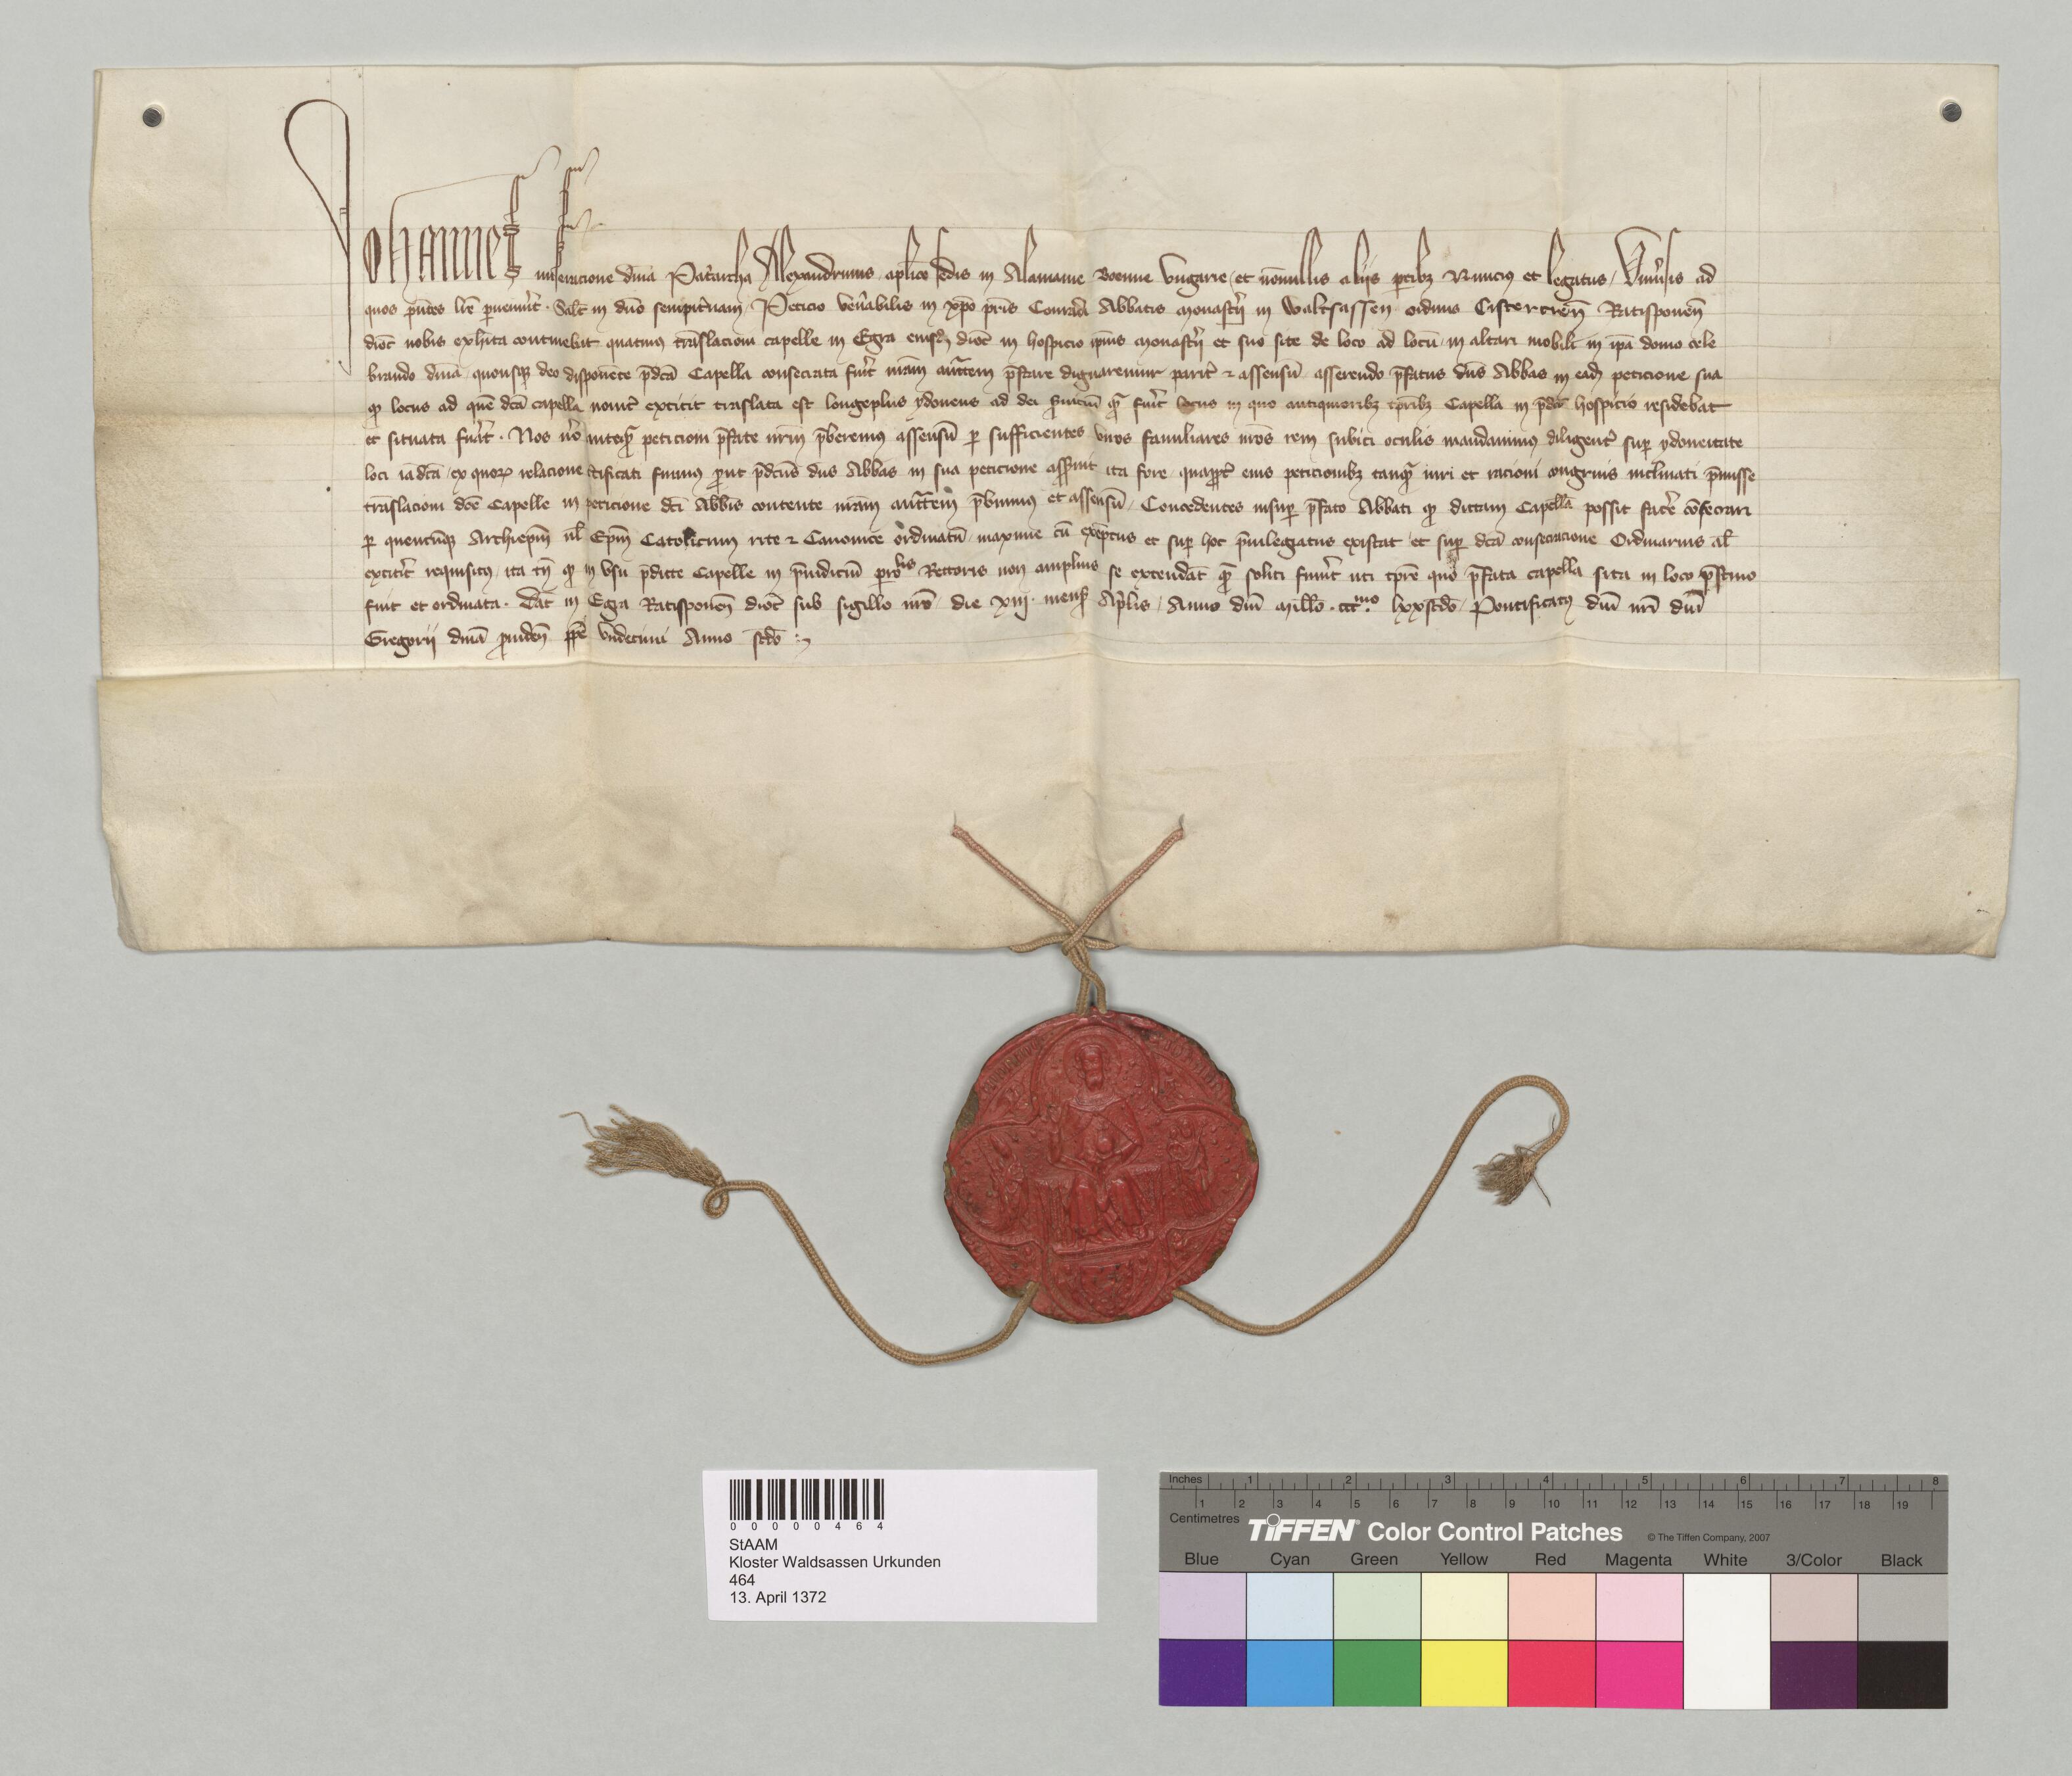 Johannes miseracione diuīa Pat̾archa Alexandrinus aplīce sedis in Alamanie Boemie Vngarie et nōnullis alijs ꝑtibꝫ Nuncius et legatus Vniu̾sis ad
quos p̄ntes lr̄e ꝑuenerīt Salt̄ in dn̄o sempit̾nam Peticio ven̾abilis in xp̄o pr̄is Conradi Abbatis Monast̾ij in Waltsassen ordinis Cistercien̄ Ratisponen̄
dioc̄ nobis exhīta continebat quatinus trāslacioni capelle in Egra eiusd̾ dioc̄ in hospicio ipīus Monast̾ij et suo site de loco ad locū in altari mobili in ip̄a domo cele
brando diuīa quousqꝫ deo disponēte p̄dcā Capella consecrata fu̾it nr̄am auctātem p̄stare dignaremur parit̾ ⁊ assensū asserendo p̄fatus dn̄s Abbas in ead̾ peticione sua
ꝙ locus ad quē dcā capella nouit̾ extitit trāslata est longeplus ydoneus ad dei s̾uiciū qͣ̄ fu̾it locus in quo antiquioribꝫ tp̄ribꝫ Capella in p̄dc̄o hospicio residebat
et situata fu̾at . Nos v̾o anteqͣ̄ peticioni p̄fate nr̄m p̄beremus assensū ꝑ sufficientes viros familiares nr̄os rem subici oculis mandauimus diligent̾ suꝑ ydoneitate
loci iādcā ex quoꝝ relacione c̾tificati fuimus ꝓut p̄dcūs dn̄s Abbas in sua peticione ass̾uit ita fore quaꝓpt̾ eius peticionibꝫ tanqͣ̄ iuri et racioni congruis inclinati p̄misse
trāslacioni dcē Capelle in peticione dc̄i Abbīs contente nr̄am auctātem p̄buimus et assensū Concedentes insuꝑ p̄fato Abbati ꝙ dictam Capellā possit fac̾e cōsecrari
ꝑ quencūqꝫ Archiepm̄ ul̄ Epm̄ Catolicum rite ⁊ Canonice ordinatū maxime cū exēptus et suꝑ hoc p̄uilegiatus existat et suꝑ dcā consecracione Ordinarius al̄
extitit̾ requisitus ita tn̄ ꝙ in vsu p̄dicte Capelle in p̄iudiciū parroᶜʰⁱˢ Rectoris non amplius se extendāt qͣ̄ soliti fu̾int uti tp̄re quo p̄fata capella sita in loco p̄stino
fuit et ordinata . Dat̄ in Egra Ratisponen̄ dioc̄ sub sigillo nr̄o die xiij . mens̾ Ap̾lis Anno dn̄i Mill̄o . cccᵐᵒ . lxxscd̄o Pontificatꝰ dn̄i nr̄i dn̄i
Gregorij diuīa ꝓuiden̄ pp̄e vndecimi Anno scd̄o
0 0 0 0 0 4 6 4
StAAM
Kloster Waldsassen Urkunden
464
13. April 1372
Inches 1 2 3 4 5 6 7 8
1 2 3 4 5 6 7 8 9 10 11 12 13 14 15 16 17 18 19
Centimetres
TIFFEN® Color Control Patches © The Tiffen Company, 2007
Blue Cyan Green Yellow Red Magenta White 3/Color Black